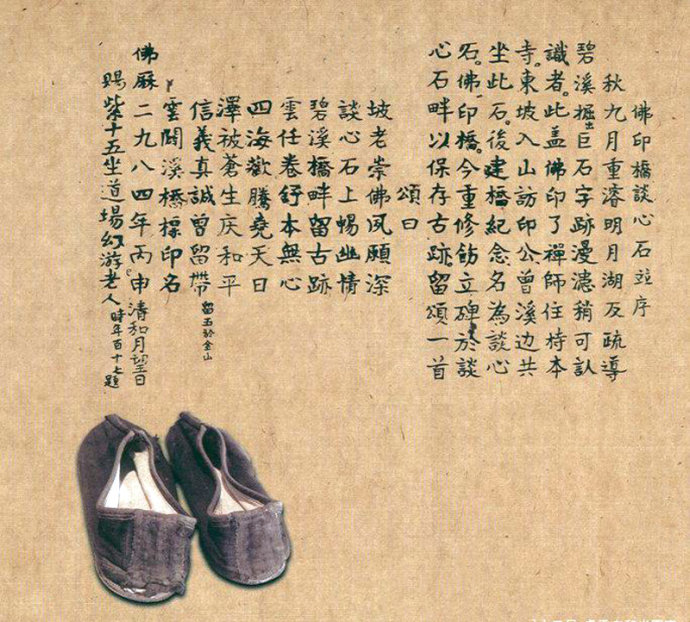 佛印橋談心石竝序
秋九月重濬明月湖及疏導
碧溪掘出巨石字跡漫漶稍可認
識者。此盖佛印了禪師住持本
寺。東坡入山訪印公曾溪边共
坐此石。後建橋紀念名為談心
石。佛印橋。今重修飭立碑於談
心石畔以保存古跡留頌一首
頌曰
坡老崇佛夙願深
談心石上暢幽情
碧溪橋畔留古跡
雲任卷舒本無心
四海歡騰堯天日
澤被蒼生庆和平
信義真誠曾留帶留玉於金山
雲閞溪橋標印名
佛厤二九八四年丙申清和月望日
賜紫十五坐道場幻游老人時年百十七題